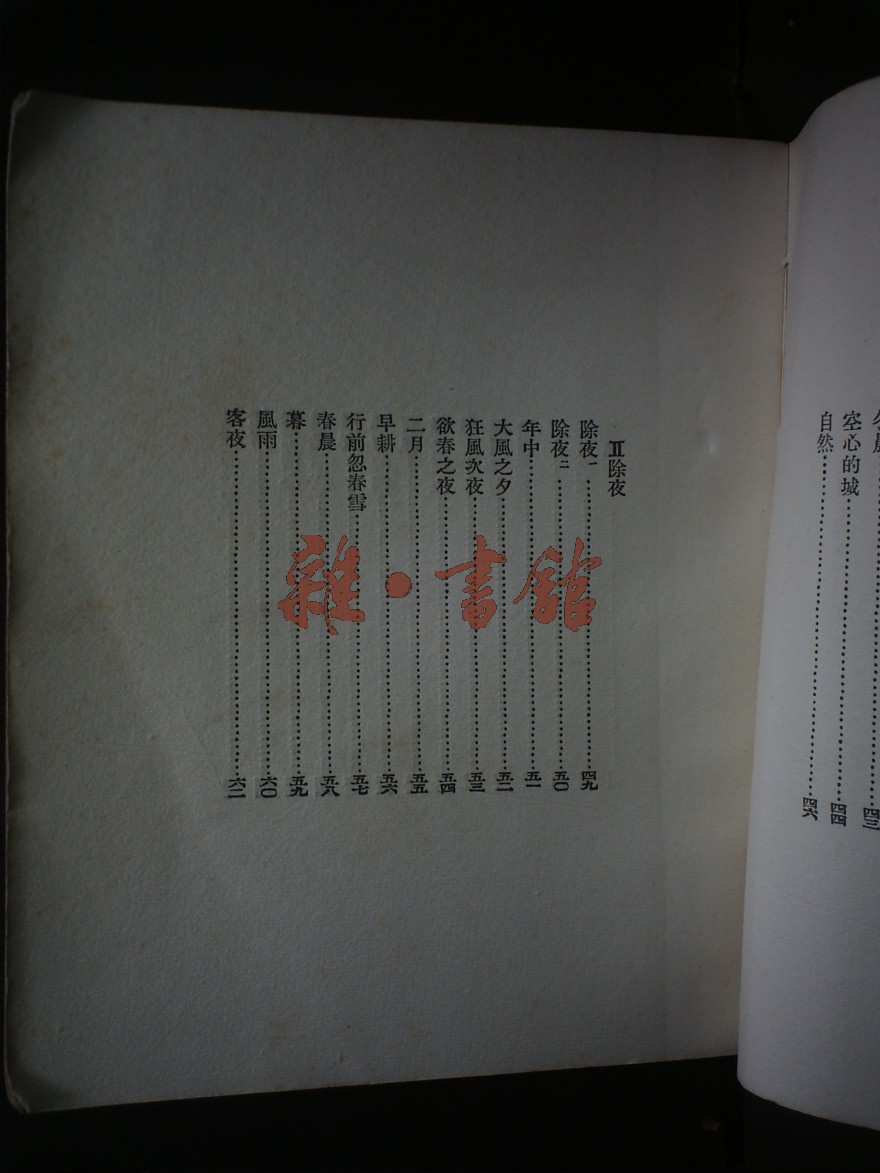 空心的城……四四
自然……四六
Ⅱ除夜
除夜一……四九
除夜二……五〇
年中……五一
大風之夕……五二
狂風次夜……五三
欲春之夜……五四
二月……五五
早耕……五六
行前忽春雪……五七
春晨……五八
暮……五九
風雨……六〇
客夜……六二
雜·書館